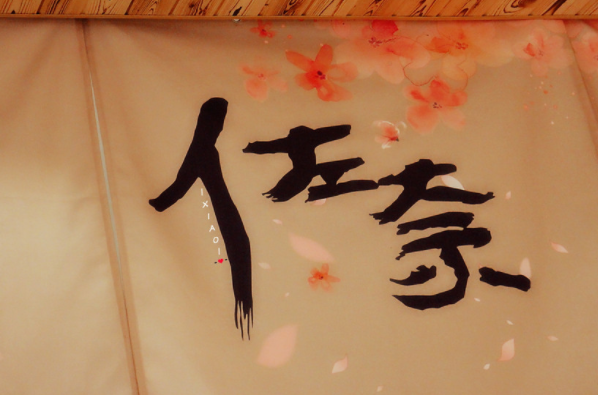 佐奈
IXIAOI